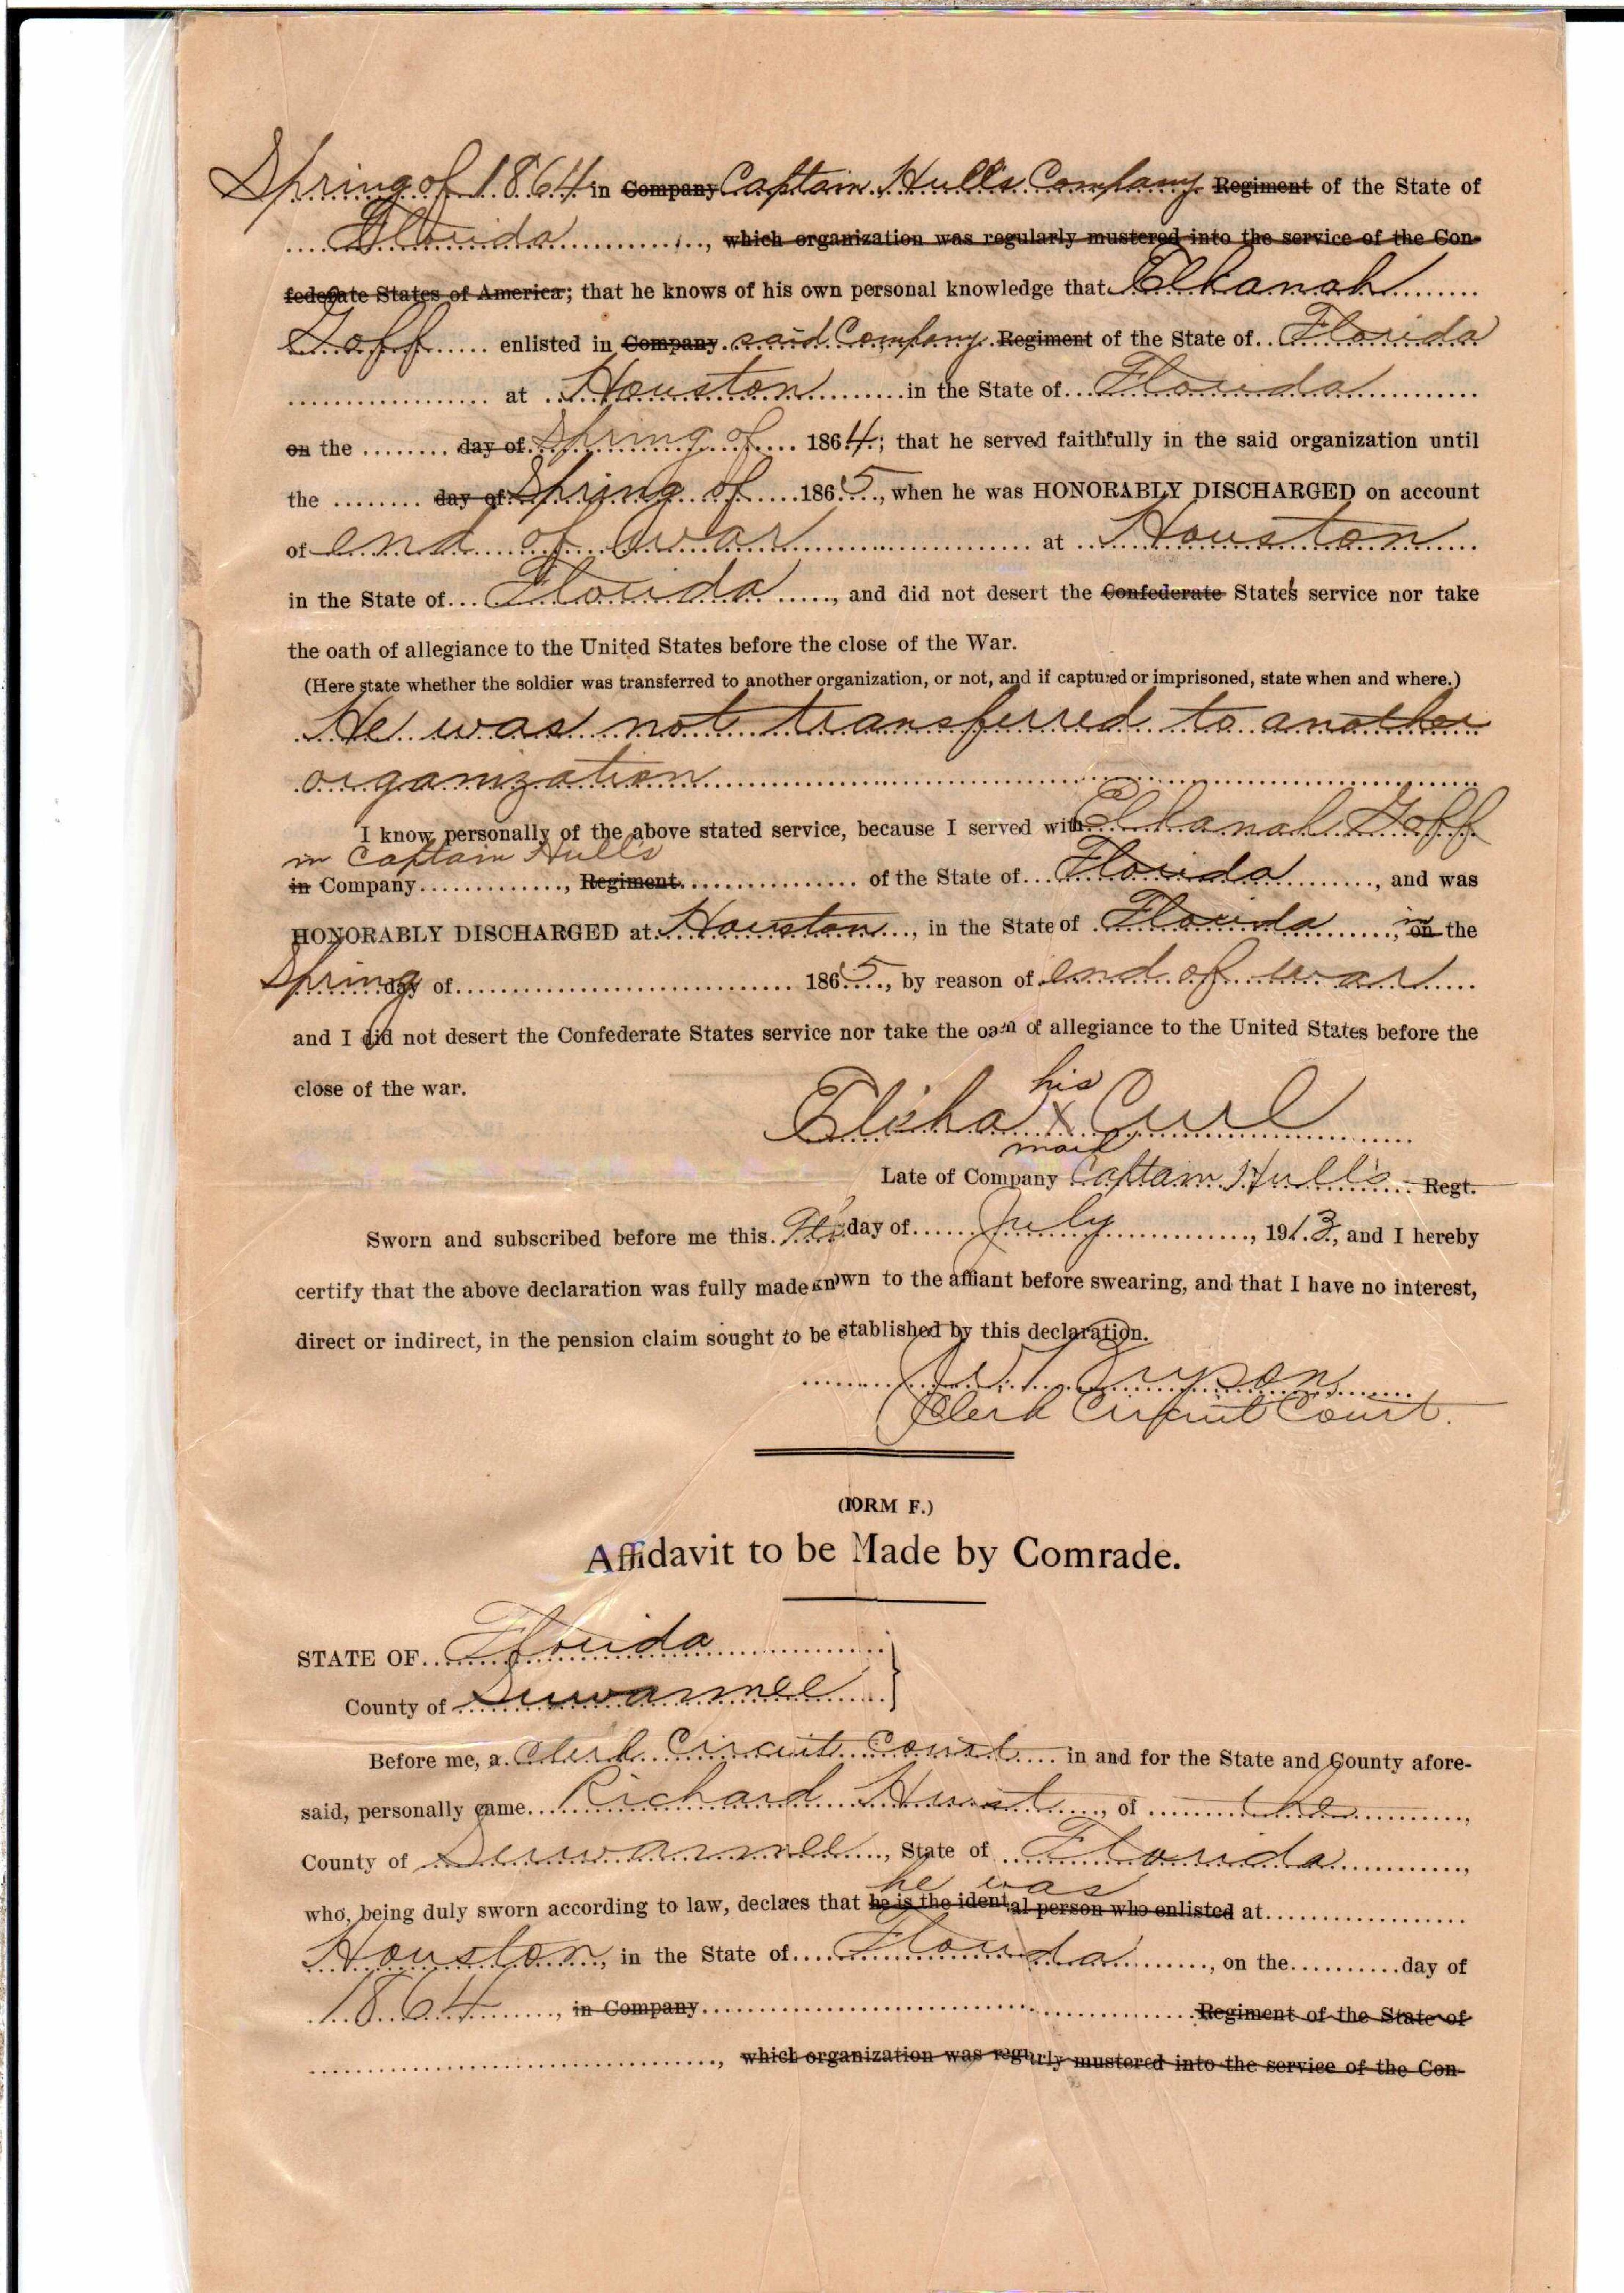 Spring of 1864 in Company Captain Hull's Company Regiment of the State of
Florida, which organization was regularly mustered into the service of the Con-
federate States of America; that he knows of his own personal knowledge that Elkanah
Goff enlisted in Company said Company Regiment of the State of Florida
at Houston in the State of Florida
on the day of Spring of 1864; that he served faithfully in the said organization until
the day of Spring of 1865, when he was HONORABLY DISCHARGED on account
of end of war at Houston
in the State of Florida, and did not desert the Confederate State's service nor take
the oath of allegiance to the United States before the close of the War.
(Here state whether the soldier was transferred to another organization, or not, and if captured or imprisoned, state when and where.)
He was not transferred to another
organization
I know personally of the above stated service, because I served with Elkanah Goff
in Captain Hull's
in Company, Regiment of the State of Florida, and was
HONORABLY DISCHARGED at Houston, in the State of Florida, in on the
Spring day of 1865, by reason of end of war
and I did not desert the Confederate States service nor take the oath of allegiance to the United States before the
close of the war.
his
Elisha X Curl
mark
Late of Company Captain Hull's Regt.
Sworn and subscribed before me this day of July, 1913, and I hereby
certify that the above declaration was fully made known to the affiant before swearing, and that I have no interest,
direct or indirect, in the pension claim sought to be established by this declaration.
Bryson
Clerk Circuit Court.
(FORM F.)
Affidavit to be Made by Comrade.
STATE OF Florida
County of Suwannee
Before me, a Clerk Circuit Court in and for the State and County afore-
said, personally came Richard Hurst, of the,
County of Suwannee, State of Florida,
he was
who, being duly sworn according to law, declares that he is the idental person who enlisted at
Houston, in the State of Florida, on the day of
1864, in Company Regiment of the State of
, which organization was regurly mustered into the service of the Con-